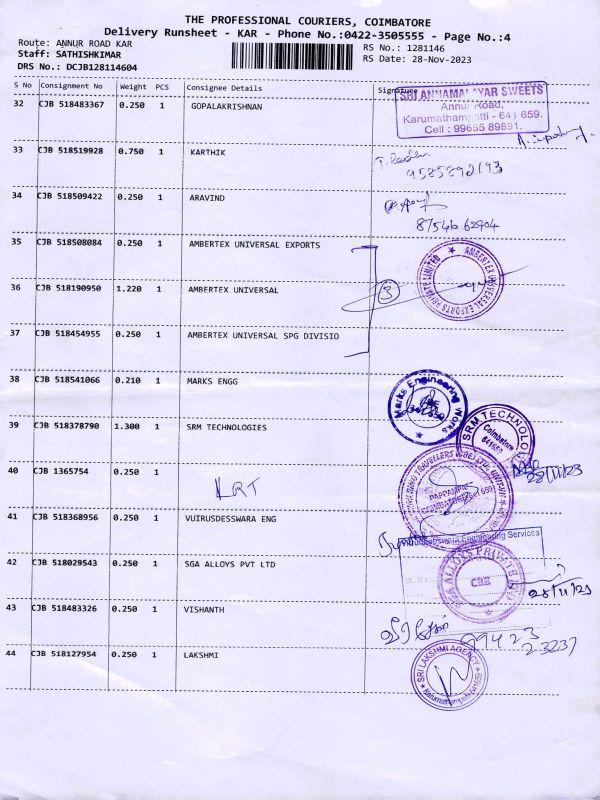 THE PROFESSIONAL COURIERS, COIMBATORE
Delivery Runsheet - KAR - Phone No.:0422-3505555 - Page No.:4
Route: ANNUR ROAD KAR
RS No.: 1281146
Staff: SATHISHKIMAR
RS Date: 28-Nov-2023
DRS No.: DCJB128114604
S No Consignment No Weight PCS Consignee Details Signature
32 CJB 518483367 0.250 1 GOPALAKRISHNAN
SRI ANNAMALAYAR SWEETS
Annur Road,
Karumathampatti - 641 659.
Cell : 99655 89891.
33 CJB 518519928 0.750 1 KARTHIK
9585892193
34 CJB 518509422 0.250 1 ARAVIND
87546 62904
35 CJB 518508084 0.250 1 AMBERTEX UNIVERSAL EXPORTS
36 CJB 518190950 1.220 1 AMBERTEX UNIVERSAL
3
AMBERTEX UNIVERSAL EXPORTS PRIVATE LIMITED
37 CJB 518454955 0.250 1 AMBERTEX UNIVERSAL SPG DIVISIO
38 CJB 518541066 0.210 1 MARKS ENGG
Marks Engineering Works
39 CJB 518378790 1.300 1 SRM TECHNOLOGIES
SRM TECHNOLOG
Coimbatore
641659
40 CJB 1365754 0.250 1
KRT
28/11/23
41 CJB 518368956 0.250 1 VUIRUSDESSWARA ENG
Engineering Services
42 CJB 518029543 0.250 1 SGA ALLOYS PVT LTD
SGA ALLOYS PRIVATE
CBE
28/11/23
43 CJB 518483326 0.250 1 VISHANTH
99423
23237
44 CJB 518127954 0.250 1 LAKSHMI
SRI LAKSHMI AGENCY